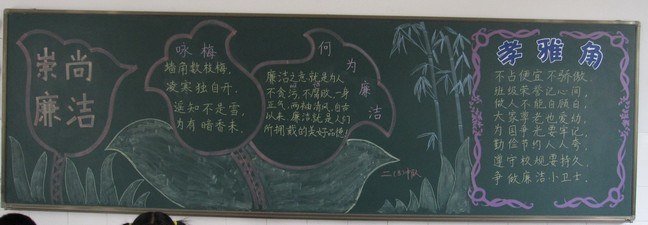 崇尚
廉洁
咏梅
墙角数枝梅，
凌寒独自开，
遥知不是雪，
为有暗香来。
何为廉洁
廉洁之竞就是为人
不贪污，不腐败，一身
正气，两袖清风，自古
以来，廉洁就是人们
所拥戴的美好品德！
二（5）中队
莘雅角
不占便宜不骄傲，
班级荣誉记心间，
做人不能自顾自，
大家尊老也爱幼，
为国争光要牢记，
勤俭节约人人夸，
遵守校规要持久，
争做廉洁小卫士。